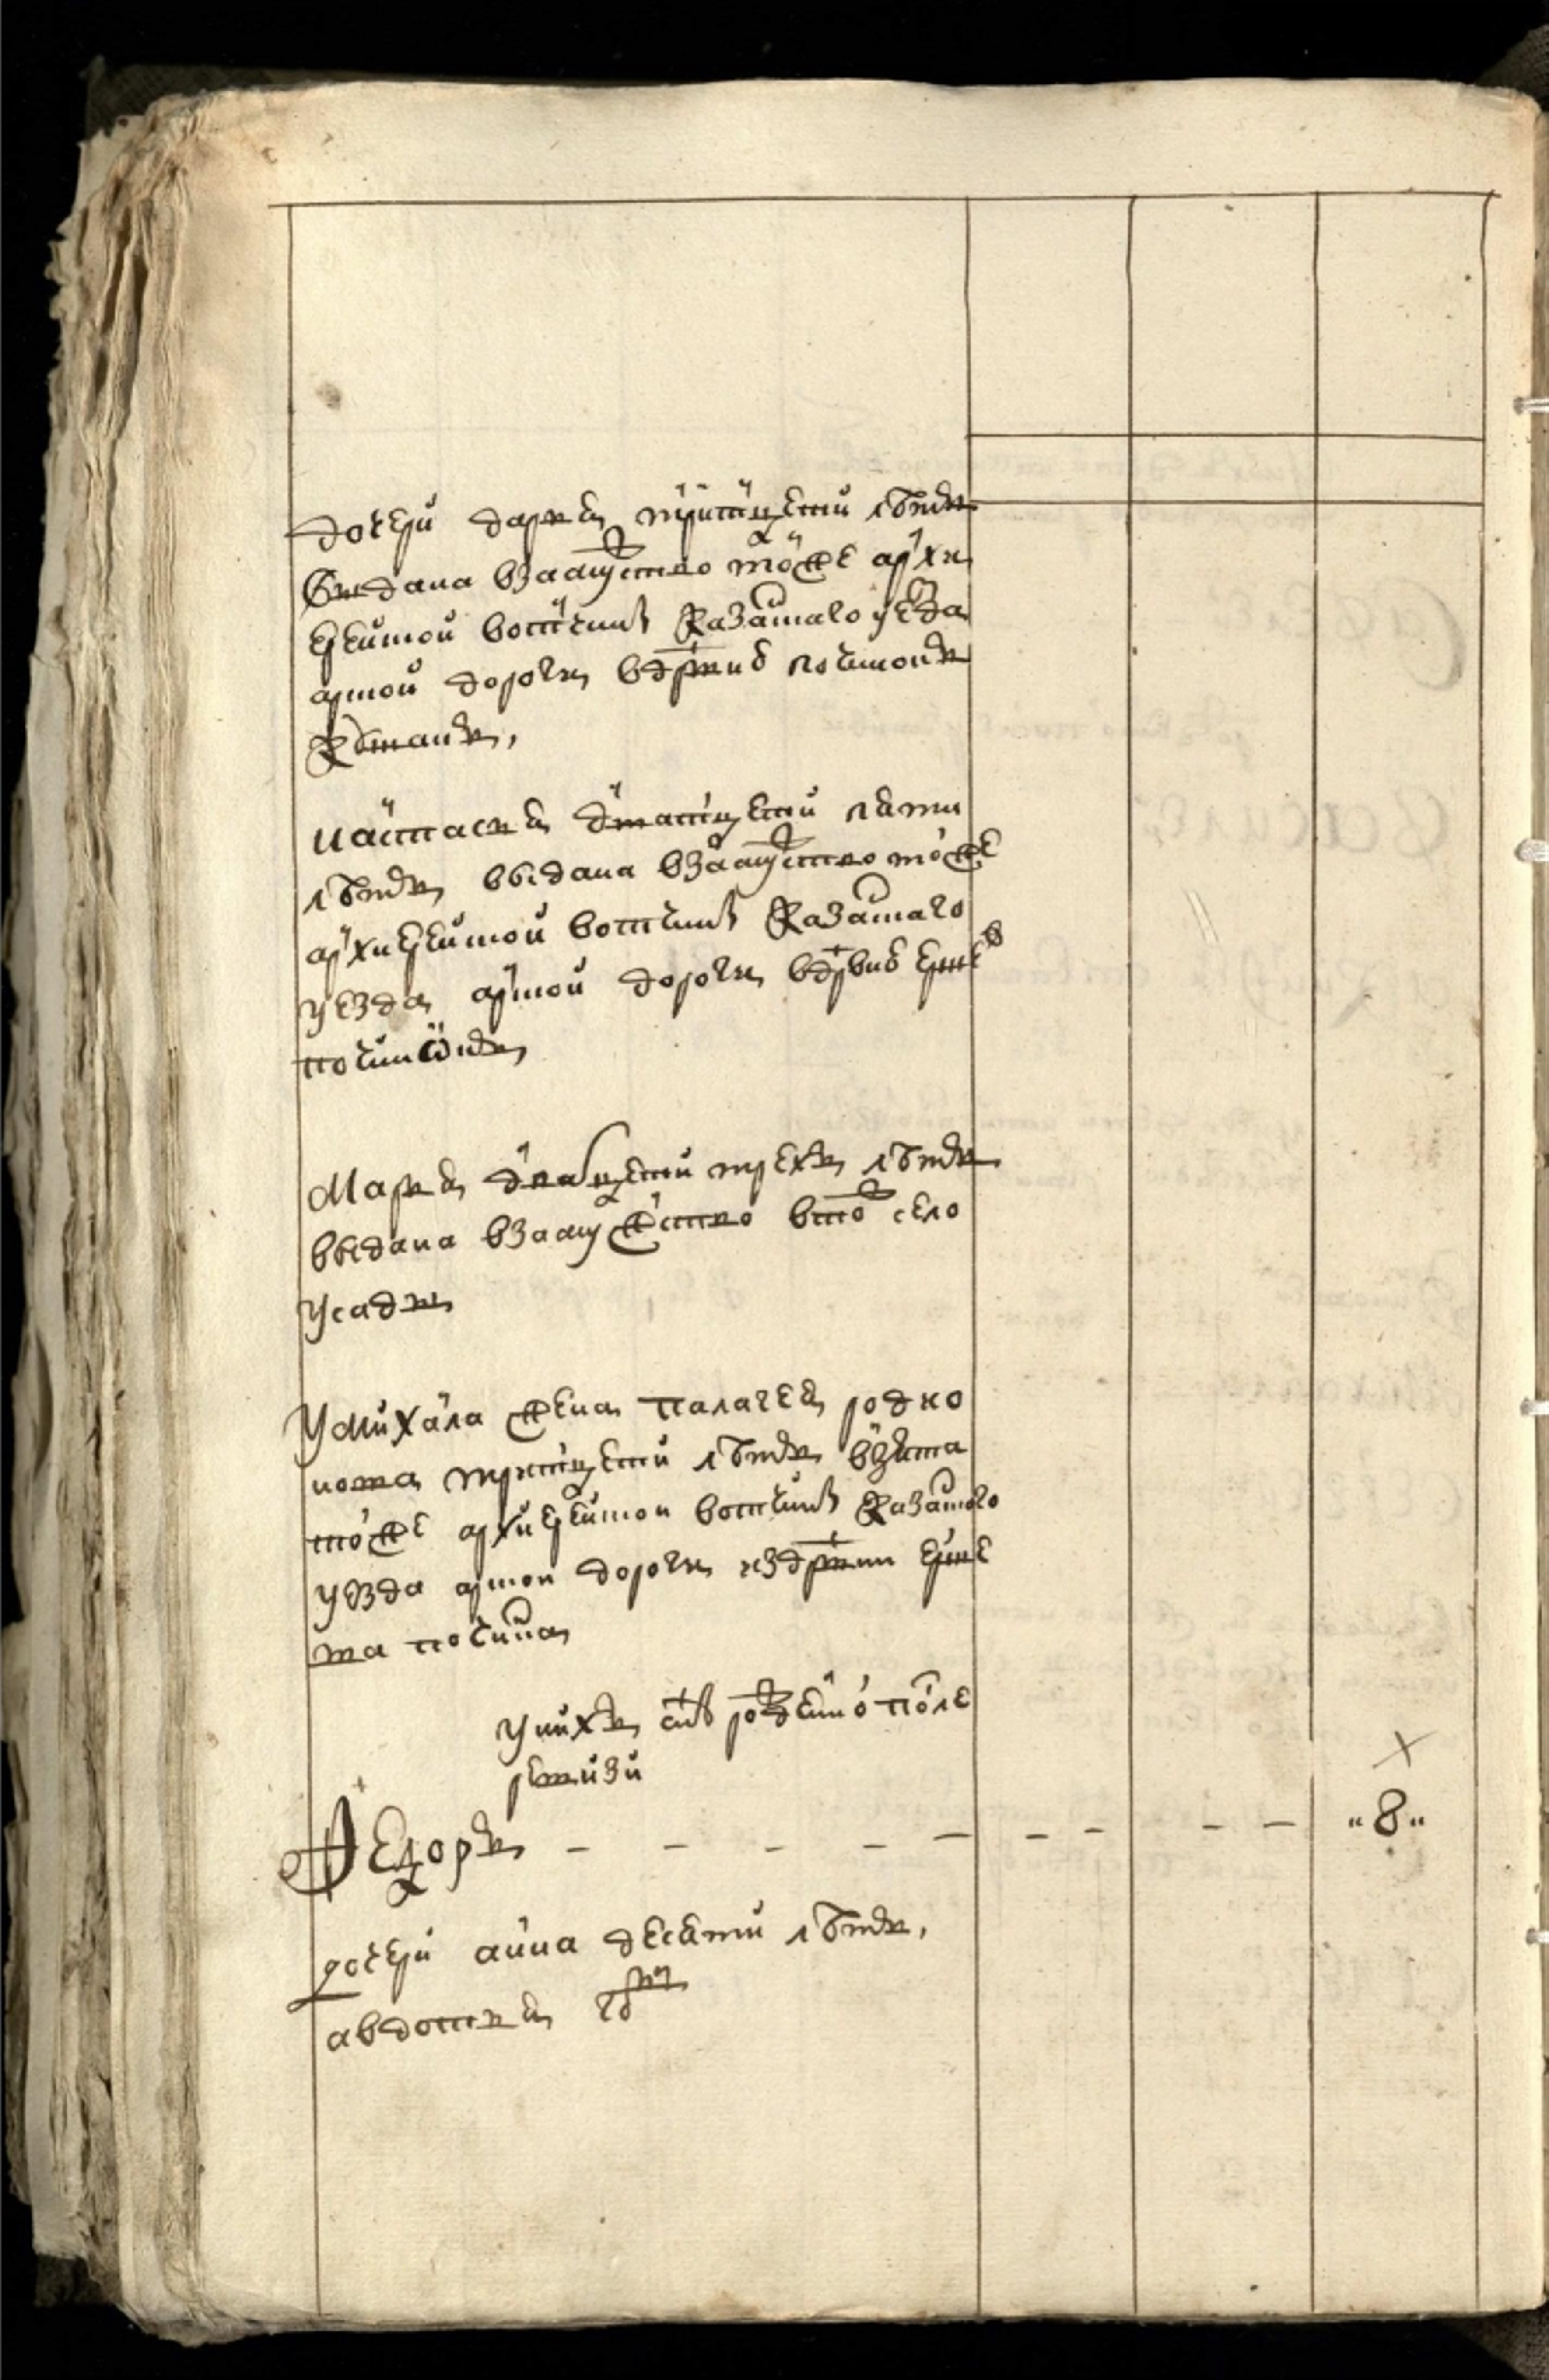 дочери дарья тритцети лѣтъ
выдана взамужство тойже архи
ерейской вотчины казанского уезда
арской дороги вдрвню починокъ
настасья дватцети пяти
лѣтъ выдана взамужство тойже
архиерейской вотчины казанского
уезда арской дороги вдрвню
починокъ
Марья дватцети трехъ лѣтъ
выдана взамужество втож село
усады
Умихаила жена палагея родио
нова тритцети лѣтъ взята
тойже архиерейской вотчины казанского
уезда арской дороги издрвни
починка
унихъ снъ рожденной после
ревизи
Ѳедоръ - - - - - - - - - "8"
дочери анна десяти лѣтъ,
авдотья